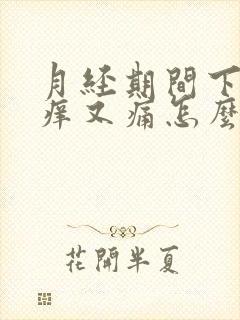 月经期間下
痒又痛怎麽
花開半夏